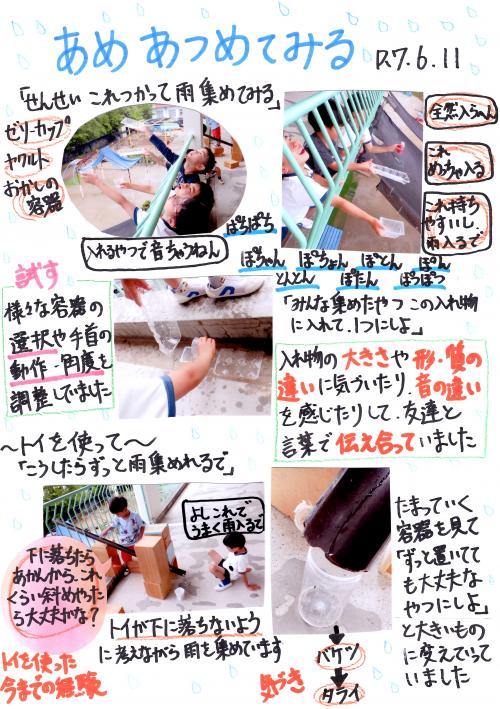 あめ あつめてみる R7.6.11
「せんせい これつかって 雨 集めてみる」
ゼリーカップ
ヤクルト
おかしの
容器
入れるやつで音ちゃうねん
ぱちぱち
ぽちゃん ぽちょん ぽとん ぽん
とんとん ぽたん ぽつぽつ
全然入らへん
これ
めっちゃ入る
これ持ち
やすいし
雨入るで
試す
様々な容器の
選択や手首の
動作・角度を
調整していました
「みんな集めたやつ この入れ物
に入れて、1つにしよ」
入れ物の大きさや形・質の
違いに気づいたり、音の違い
を感じたりして、友達と
言葉で伝え合っていました
〜トイを使って〜
「こうしたらずっと雨集めれるで」
よし これで
うまく雨入るで
下に落ちたら
あかんから、これ
くらい斜めやった
ら大丈夫かな?
トイを使った
今までの経験
トイが下に落ちないよう
に考えながら雨を集めています
たまっていく
容器を見て
「ずっと置いてて
も大丈夫な
やつにしよ」
と大きいもの
に変えていって
いました
気づき
バケツ
タライ